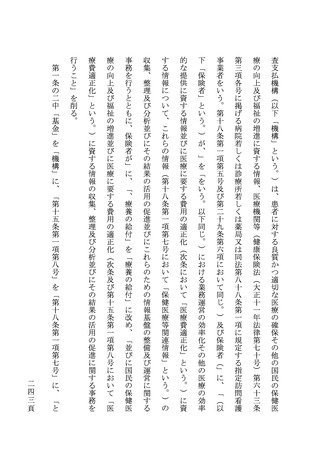 査支払機構（以下「機構」という。）は、患者に対する良質かつ適切な医療の確保その他の国民の保健医
療の向上及び福祉の増進に資する情報、医療機関等（健康保険法（大正十一年法律第七十号）第六十三条
第三項各号に掲げる病院若しくは診療所若しくは薬局又は同法第八十八条第一項に規定する指定訪問看護
事業者をいう。第十八条第一項第五号及び第二十九条第六項において同じ。）及び保険者（」に、「（以
下「保険者」という。）が、」を「をいう。以下同じ。）における業務運営の効率化その他の医療の効率
的な提供に資する情報並びに医療に要する費用の適正化（次条において「医療費適正化」という。）に資
する情報について、これらの情報（第十八条第一項第七号において「保健医療等関連情報」という。）の
収集、整理及び分析並びにその結果の活用の促進並びにこれらのための情報基盤の整備及び運営に関する
事務を行うとともに、保険者が」に、「、療養の給付」を「療養の給付」に改め、「並びに国民の保健医
療の向上及び福祉の増進並びに医療に要する費用の適正化（次条及び第十五条第一項第八号において「医
療費適正化」という。）に資する情報の収集、整理及び分析並びにその結果の活用の促進に関する事務を
行うこと」を削る。
第一条の二中「基金」を「機構」に、「第十五条第一項第八号」を「第十八条第一項第七号」に、「と
二四三頁